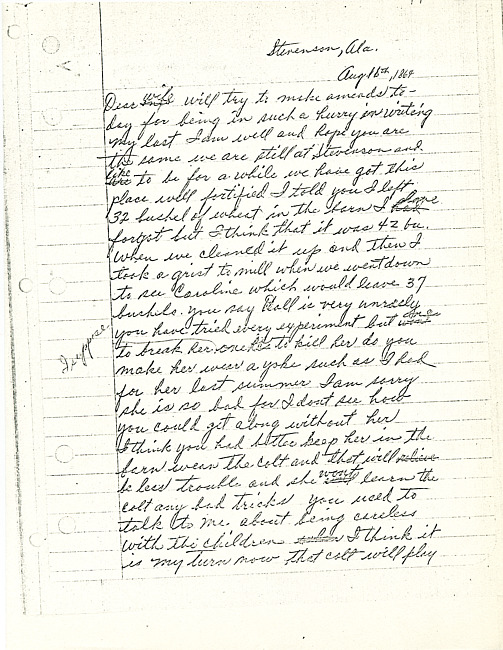 Stevenson, Ala.
Aug 16th, 1864
Dear wife will try to make amends to-
day for being in such a hurry in writing
my last I am well and hope you are
the same we are still at Stevenson and
like to be for a while we have got this
place well fortified I told you I left
32 bushel of wheat in the barn I
forgot but I think that it was 42 bu.
When we cleaned it up and then I
took a grist to mill when we went down
to see Caroline which would leave 37
bushels. you say Doll is very unruly
I suppose
you have tried every experiment but one
to break her one is to kill her do you
make her wear a yoke such as I had
for her last summer I am sorry
she is so bad for I dont see how
you could get along without her
I think you had better keep her in the
barn wean the colt and that will
be less trouble and she wont learn the
colt any bad tricks you used to
talk to me about being careless
with the children I think it
is my turn now that colt will play